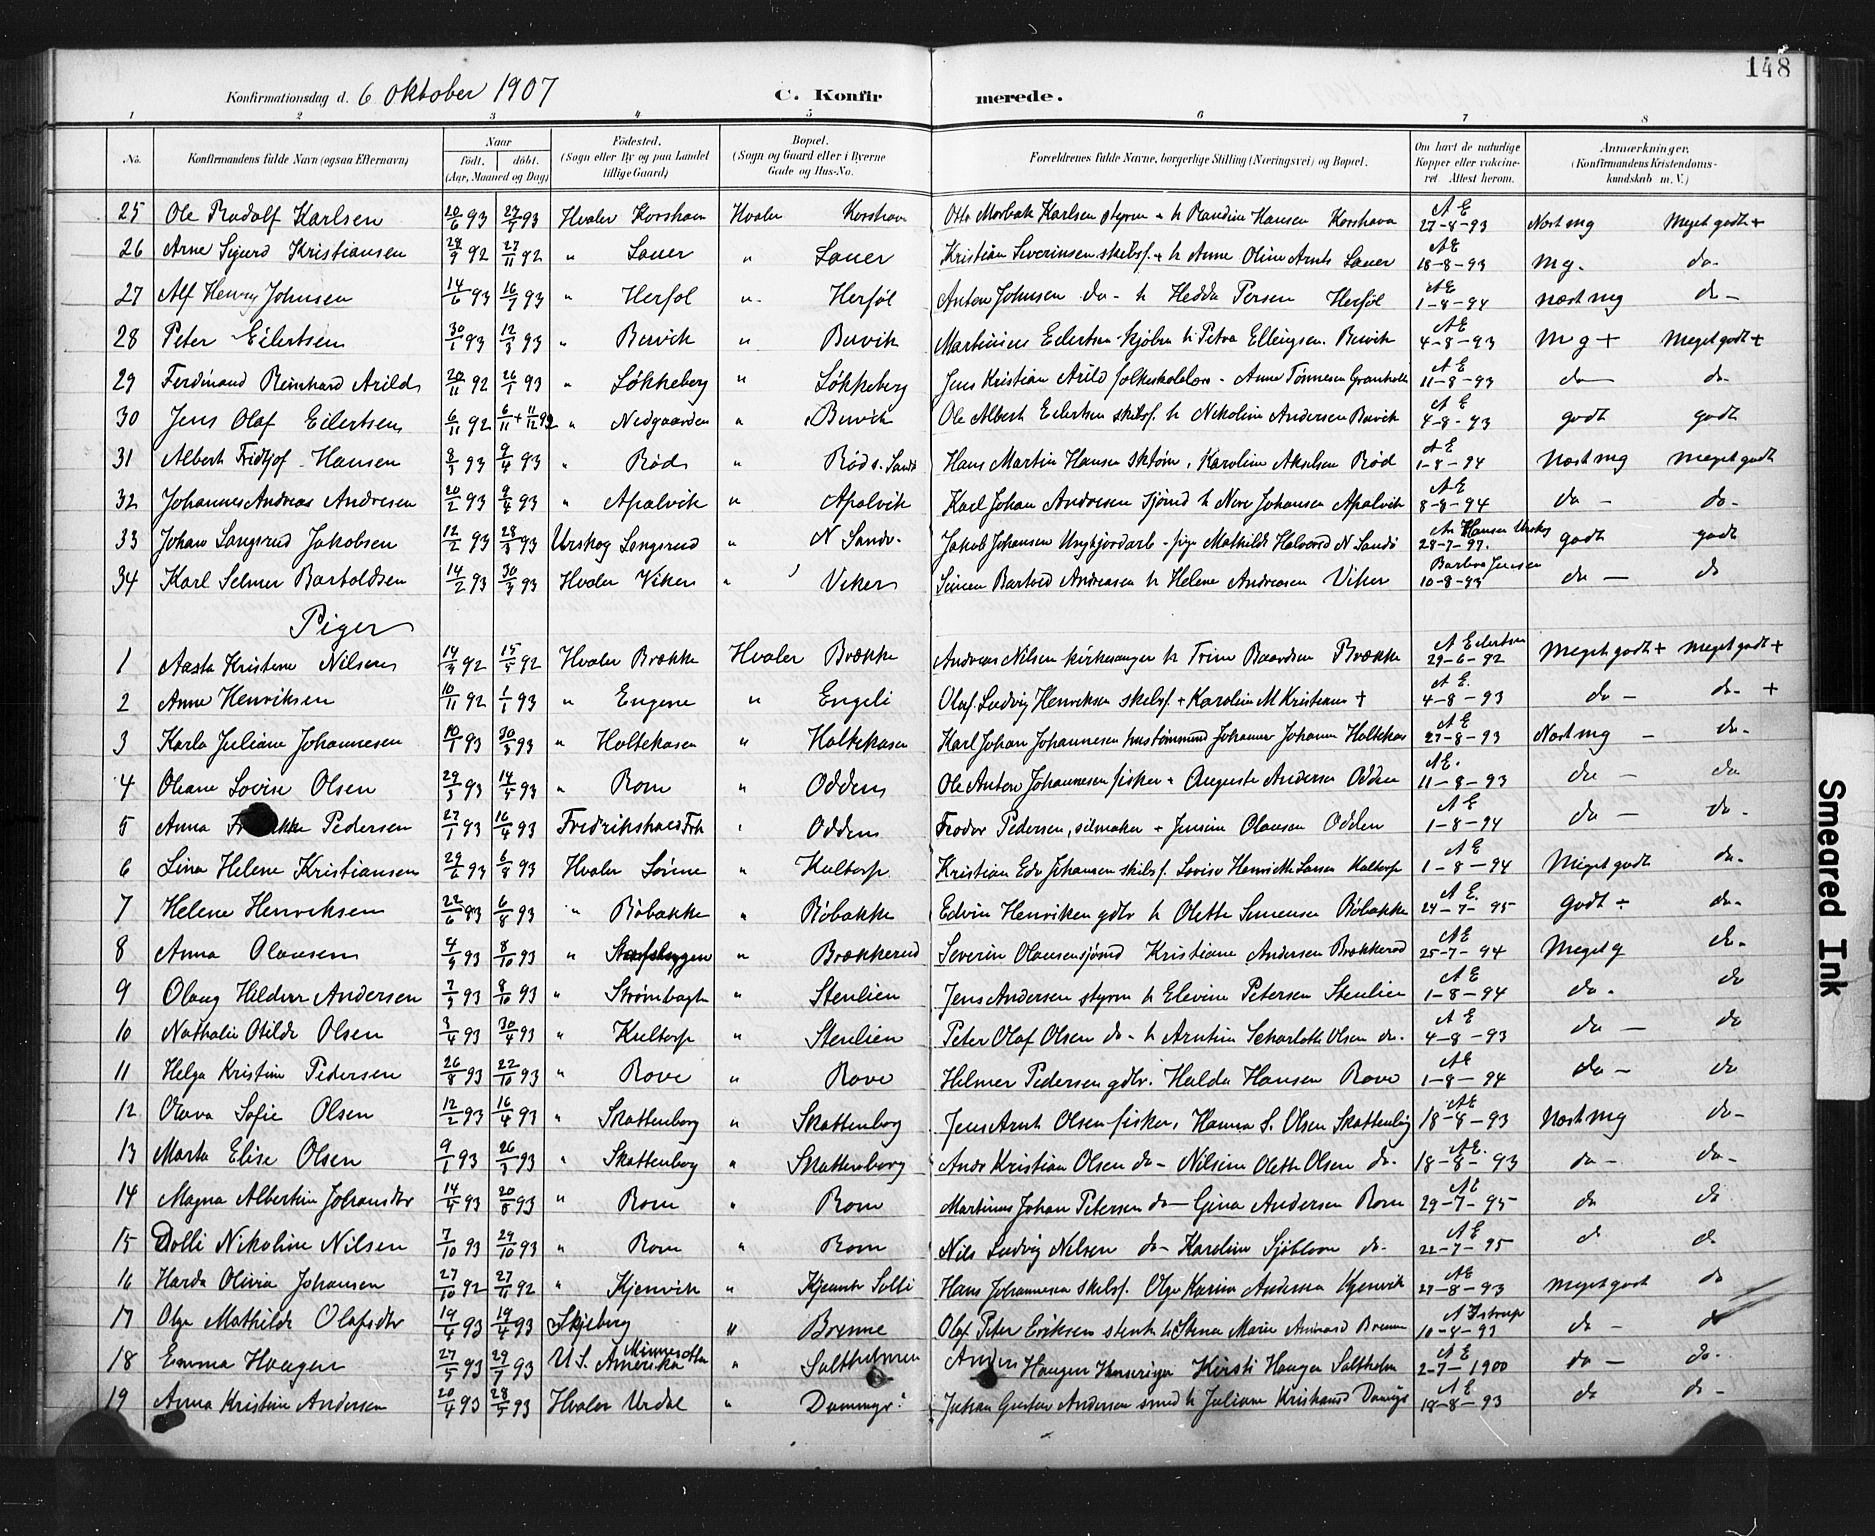 148
Konfirmationsdag d. 6 oktober 1907 C. Konfirmerede.
1 2 3 4 5 6 7 8
No. Konfirmandens fulde Navn (ogsaa Efternavn) Naar födt. döbt. (Aar, Maaned og Dag) Födested. (Sogn eller By og paa Landet tillige Gaard) Bopæl. (Sogn og Gaard eller i Byerne Gade og Hus-No. Forældrenes fulde Navne, borgerlige Stilling (Næringsvei) og Bopæl. Om havt de naturlige Kopper eller vaccineret. Attest herom. Anmærkninger. (Konfirmandens Kristendomskundskab m. V.)
25 Ole Rudolf Karlsen 20/6 93 27/7 93 Hvaler Korshavn Hvaler Korshavn Otto Karlsen styrm + h Hansen Korshavn A E 27-8-93 Næst mg Meget godt +
26 Arne Sigurd Kristiansen 28/9 92 27/11 92 " Lauer " Lauer Kristian Severinsen skibsf. + h Anne Oline Arnts Lauer A E 18-8-93 mg. do-
27 Alf Henry Johnsen 14/6 93 16/7 93 " Herføl " Herføl Anton Johnsen do- h Hedda Persen Herføl A E 1-8-94 næst mg do-
28 Peter Eilertsen 30/1 93 12/3 93 " Bervik " Bervik Martinius Eilertsen h Petra Ellingsen Bervik A E 4-8-93 Mg + Meget godt +
29 Ferdinand Reinhard Arild 20/11 92 26/1 93 " Løkkeberg " Løkkeberg Jens Kristian Arild - Anne Tønnesen A E 11-8-93 do- do-
30 Jens Olaf Eilertsen 6/11 92 6/11 + 11/12 92 " Nedgaarden " Bervik Ole Albert Eilertsen skibsf. h Nikoline Andersen Bervik A E 4-8-93 godt godt
31 Albert Fridtjof Hansen 8/3 93 9/4 93 " Rød " Rød s. Sandø Hans Martin Hansen Karoline Akselsen Rød A E 1-8-94 Næst mg meget godt
32 Johannes Andreas Andresen 20/2 93 9/4 93 " Apalvik " Apalvik Karl Johan Andresen sjømd h Johansen Apalvik A E 8-8-94 do - do-
33 Johan Langsrud Jakobsen 12/2 93 28/3 93 Urskog Langsrud " N Sandø Jakob Johansen - pige Mathilde Halvorsd N Sandø Hansen Urskog 28-7-97. godt godt
34 Karl Selmer Bartoldsen 14/2 93 30/3 93 Hvaler Viker " Viker Simen Bartold Andreasen h Helene Andreasen Viker Barbra Jensen 10-8-93 do - do
Piger
1 Aasta Kristine Nilsen 14/3 92 15/5 92 Hvaler Brække Hvaler Brække Andreas Nilsen kirkesanger h Trine Baardsen Brække A Eilertsen 29-6-92 Meget godt + meget godt +
2 Anne Henriksen 10/11 92 1/1 93 " Engene " Engeli Olaf Ludvig Henriksen skibsf. + Karoline M Kristians + A E. 4-8-93 do - do- +
3 Karla Juliane Johannesen 10/1 93 30/3 93 " Holtekasen " Holtekasen Karl Johan Johannesen Johanne Johann Holtekas A E 27-8-93 Næst mg - do-
4 Oleane Lovise Olsen 29/3 93 14/5 93 " Rom " Odden Ole Anton Johannesen fisker + Auguste Andersen Odden A E. 11-8-93 do - do
5 Anna Pedersen 27/1 93 16/4 93 Fredrikshald " Odden Teodor Pedersen, seilmaker + Jensine Olausen Odden A E 1-8-94 do - do-
6 Lina Helene Kristiansen 29/6 93 6/8 93 Hvaler " Kultorp Kristian Edv Johansen skibsf. Lovise Henriette Larsen Kultorp A E 1-8-94 Meget godt do-
7 Helene Henriksen 22/6 93 6/8 93 " Røbakke " Røbakke Edvin Henriksen gdbr h Olette Simensen Røbakke A E. 24-7-95 godt ÷ do-
8 Anna Olausen 4/3 93 8/10 93 " " Brækkerød Severin Olausen sjømd Kristiane Andersen Brækkerød A E 25-7-94 Meget g do-
9 Olaug Hildur Andersen 7/3 93 8/10 93 " Strømbagh " Stenlien Jens Andersen styrm h Elevine Petersen Stenlien A E 1-8-94 do- do
10 Nathalie Otilde Olsen 3/4 93 30/4 93 " Kultorp " Stenlien Peter Olaf Olsen do- h Arntine Scharlotte Olsen do- A E 4-8-93 do - do
11 Helga Kristine Pedersen 26/8 93 22/10 93 " Rove " Rove Helmer Pedersen gdbr. Hulda Hansen Rove A E 1-8-94 do - do
12 Olava Sofie Olsen 12/2 93 16/4 93 " Skattenborg " Skattenborg Jens Arnt Olsen fisker, Hanna S. Olsen Skattenbg A E 18-8-93 Næst mg do-
13 Marta Elise Olsen 9/1 93 26/3 93 " Skattenborg " Skattenborg Andr Kristian Olsen do- Nilsine Olette Olsen do- A E. 18-8-93 do- do-
14 Magna Albertine Johansdtr 14/4 93 20/8 93 " Rom " Rom Martinus Johan Petersen do- Gina Andersen Rom A E 29-7-95 do do
15 Dolli Nikoline Nilsen 7/10 93 29/10 93 " Rom " Rom Nils Ludvig Nilsen do- Karoline Sjöbloom do- A E 22-7-95 do do
16 Harda Olivia Johansen 27/10 92 27/11 92 " Kjenvik " Solli Hans Johannesen skibsf. Olga Karine Andersen Kjenvik A E 27-8-93 meget godt do
17 Olga Mathilde Olafsdtr 19/4 93 19/4 93 Skjeberg " Brenne Olaf Peter Eriksen h Stena Marie Brenne A Istrup 10-8-93 do - do
18 Emma Haugen 27/5 93 29/7 93 U.S. Amerika Minnesotta " Saltholmen Anders Haugen Kirsti Haugen Saltholm A E 2-7-1900 do - do-
19 Anna Kristine Andersen 20/4 93 28/5 93 Hvaler Urdal " Johan Gustav Andersen smed h Juliane Kristiansd A E 18-8-93 do do -
Smeared Ink